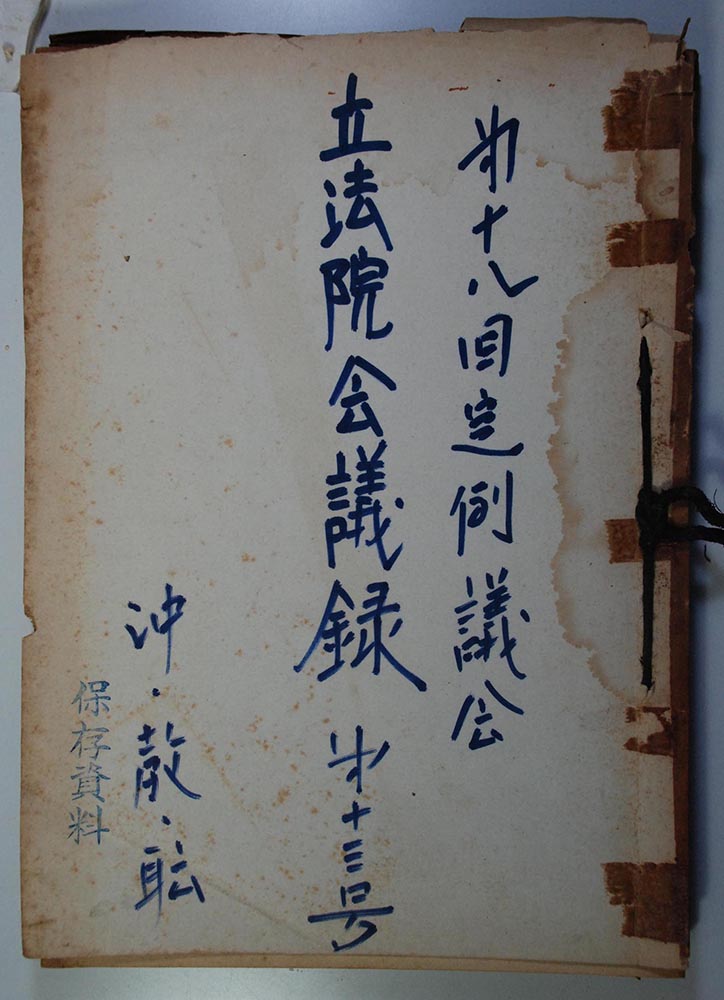 第十八回定例議会
立法院会議録 第十三号
沖・教・職
保存資料